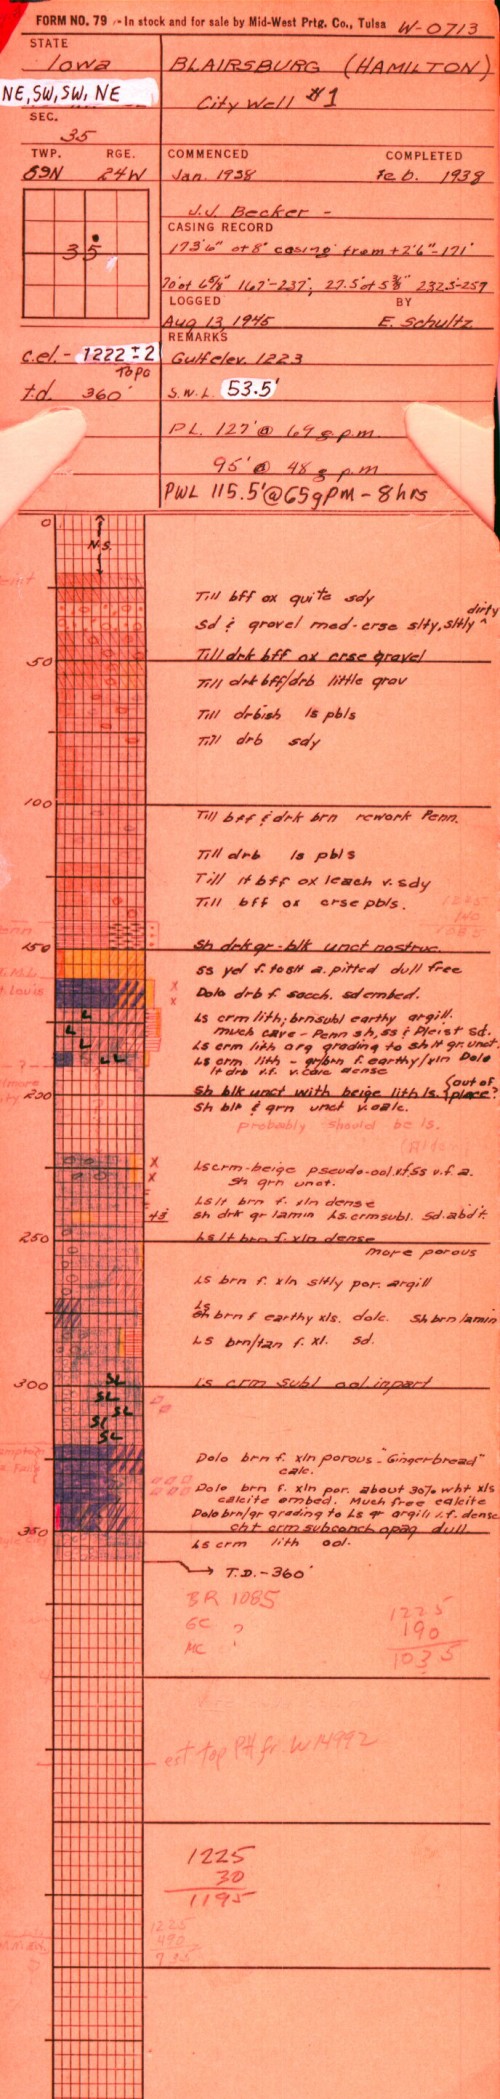 FORM NO. 79 -In stock and for sale by Mid-West Prtg. Co., Tulsa W-0713
STATE
Iowa BLAIRSBURG (HAMILTON)
NE, SW, SW, NE City Well #1
SEC.
35
TWP. RGE. COMMENCED COMPLETED
89N 24W Jan. 1938 Feb. 1938
J.J. Becker -
35 CASING RECORD
173'6" of 8" casing from +2'6"-171'
70' of 6 5/8" 167'-237', 27.5' of 5 3/8" 232.5-259
LOGGED BY
Aug 13, 1945 E. Schultz
REMARKS
c.el.- 1222 ± 2 Gulf elev. 1223
Topo
t.d. 360' S.W.L. 53.5'
P.L. 127' @ 69 g.p.m.
95' @ 48 g.p.m
PWL 115.5' @ 65 gpm - 8 hrs
0
N.S.
Till bff ox quite sdy
dirty
Sd & grovel med-crse slty, sltly ^
Till drk bff ox crse gravel
50
Till drk bff/drb little grav
Till drbish ls pbls
Till drb sdy
100
Till bff & drk brn rework Penn.
Till drb ls pbls
Till lt bff ox leach v. sdy
Till bff ox crse pbls.
1225
140
1085
150 Sh drk gr-blk unct nostruc.
ss yel f. to slt a. pitted dull free
t. Louis Dolo drb f. sacch. sd embed.
x
x
L Ls crm lith; brn subl earthy argill.
L much cave - Penn sh, ss & Pleist sd.
Ls crm lith arg grading to sh lt gr unct.
L L Ls crm lith - gr/brn f. earthy/xln Dolo
lt drb v.f. v. calc dense
200 Sh blk unct with beige lith ls. {out of place?
Sh blk & grn unct v. calc.
probably should be ls.
X Ls crm-beige pseudo-ool. v.f. ss v.f. a.
X Sh grn unct.
Ls lt brn f. xln dense
43 Sh drk gr lamin Ls. crm subl. Sd. abdt.
250 Ls lt brn f. xln dense
more porous
Ls brn f. xln sltly por. argill
Ls
Sh brn f earthy xls. dolc. Sh brn lamin
Ls brn/tan f. xl. sd.
300 Ls crm subl ool inpart
SL
SL
SL
SL
SL
Dolo brn f. xln porous - "Gingerbread"
calc.
Dolo brn f. xln por. about 30% wht xls
calcite embed. Much free calcite
Dolo brn/gr grading to Ls gr argill v.f. dense
350 cht crm subconch opaq dull
Ls crm lith ool.
T.D. - 360'
BR 1085 1225
GC ? 190
MC 1035
est top PH fr. W14992
1225
30
1195
1225
490
735